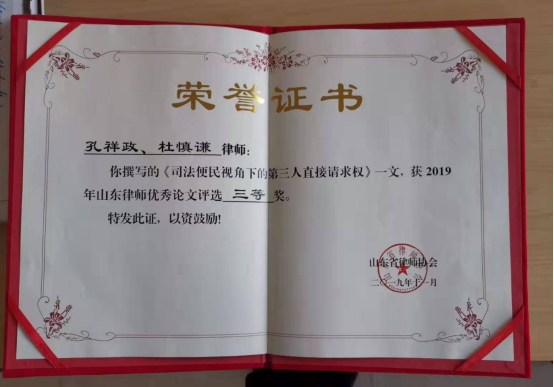 荣誉证书
孔祥政、杜慎谦 律师:
你撰写的《司法便民视角下的第三人直接请求权》一文,获 2019
年山东律师优秀论文评选 三等 奖。
特发此证,以资鼓励!
山东省律师协会
二〇一九年十一月